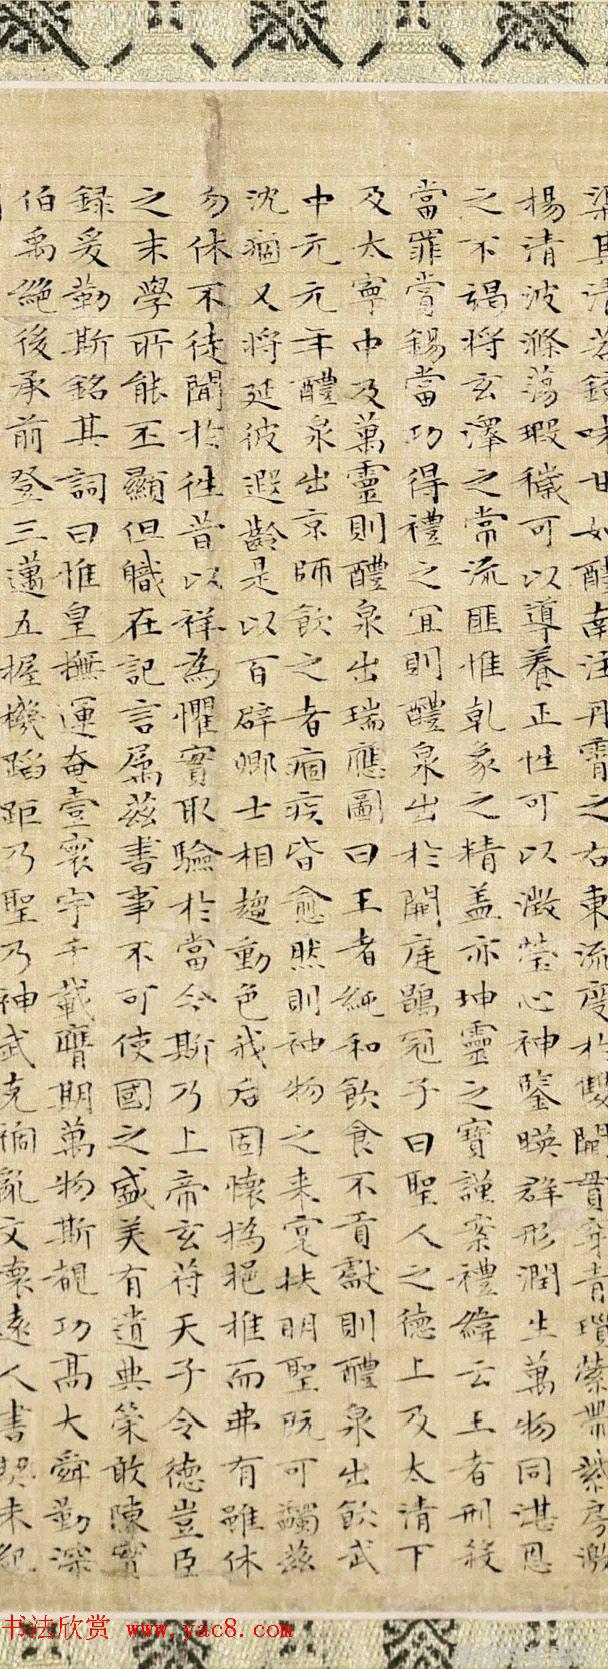 渠其清若鏡味甘如醴南注丹霄之右東流度於雙闕貫穿青瑣縈帶紫房激
楊清波滌蕩瑕穢可以導養正性可以澂瑩心神鑒暎群形潤生萬物同湛恩
之不竭將玄澤之常流匪惟乾象之精盖亦坤靈之寶謹案禮緯云王者刑殺
當罪賞錫當功得禮之宜則醴泉出於闕庭鶡冠子曰聖人之德上及太清下
及太寧中及萬靈則醴泉出瑞應圖曰王者純和飲食不貢獻則醴泉出飲武
中元元年醴泉出京師飲之者痼疾皆愈然則神物之来寔扶明聖既可蠲茲
沈痼又將延彼遐齡是以百辟卿士相趨動色我后固懷撝挹推而弗有雖休
勿休不徒聞於往昔以祥為懼實取驗於當今斯乃上帝玄符天子令德豈臣
之末學所能丕顯但職在記言屬茲書事不可使國之盛美有遺典策敢陳實
録爰勒斯銘其詞曰惟皇撫運奄壹寰宇千載膺期萬物斯覩功髙大舜勤深
伯禹絕後承前登三邁五握機蹈距乃聖乃神武克禍亂文懷遠人書契未紀
书法欣赏 www.yac8.com